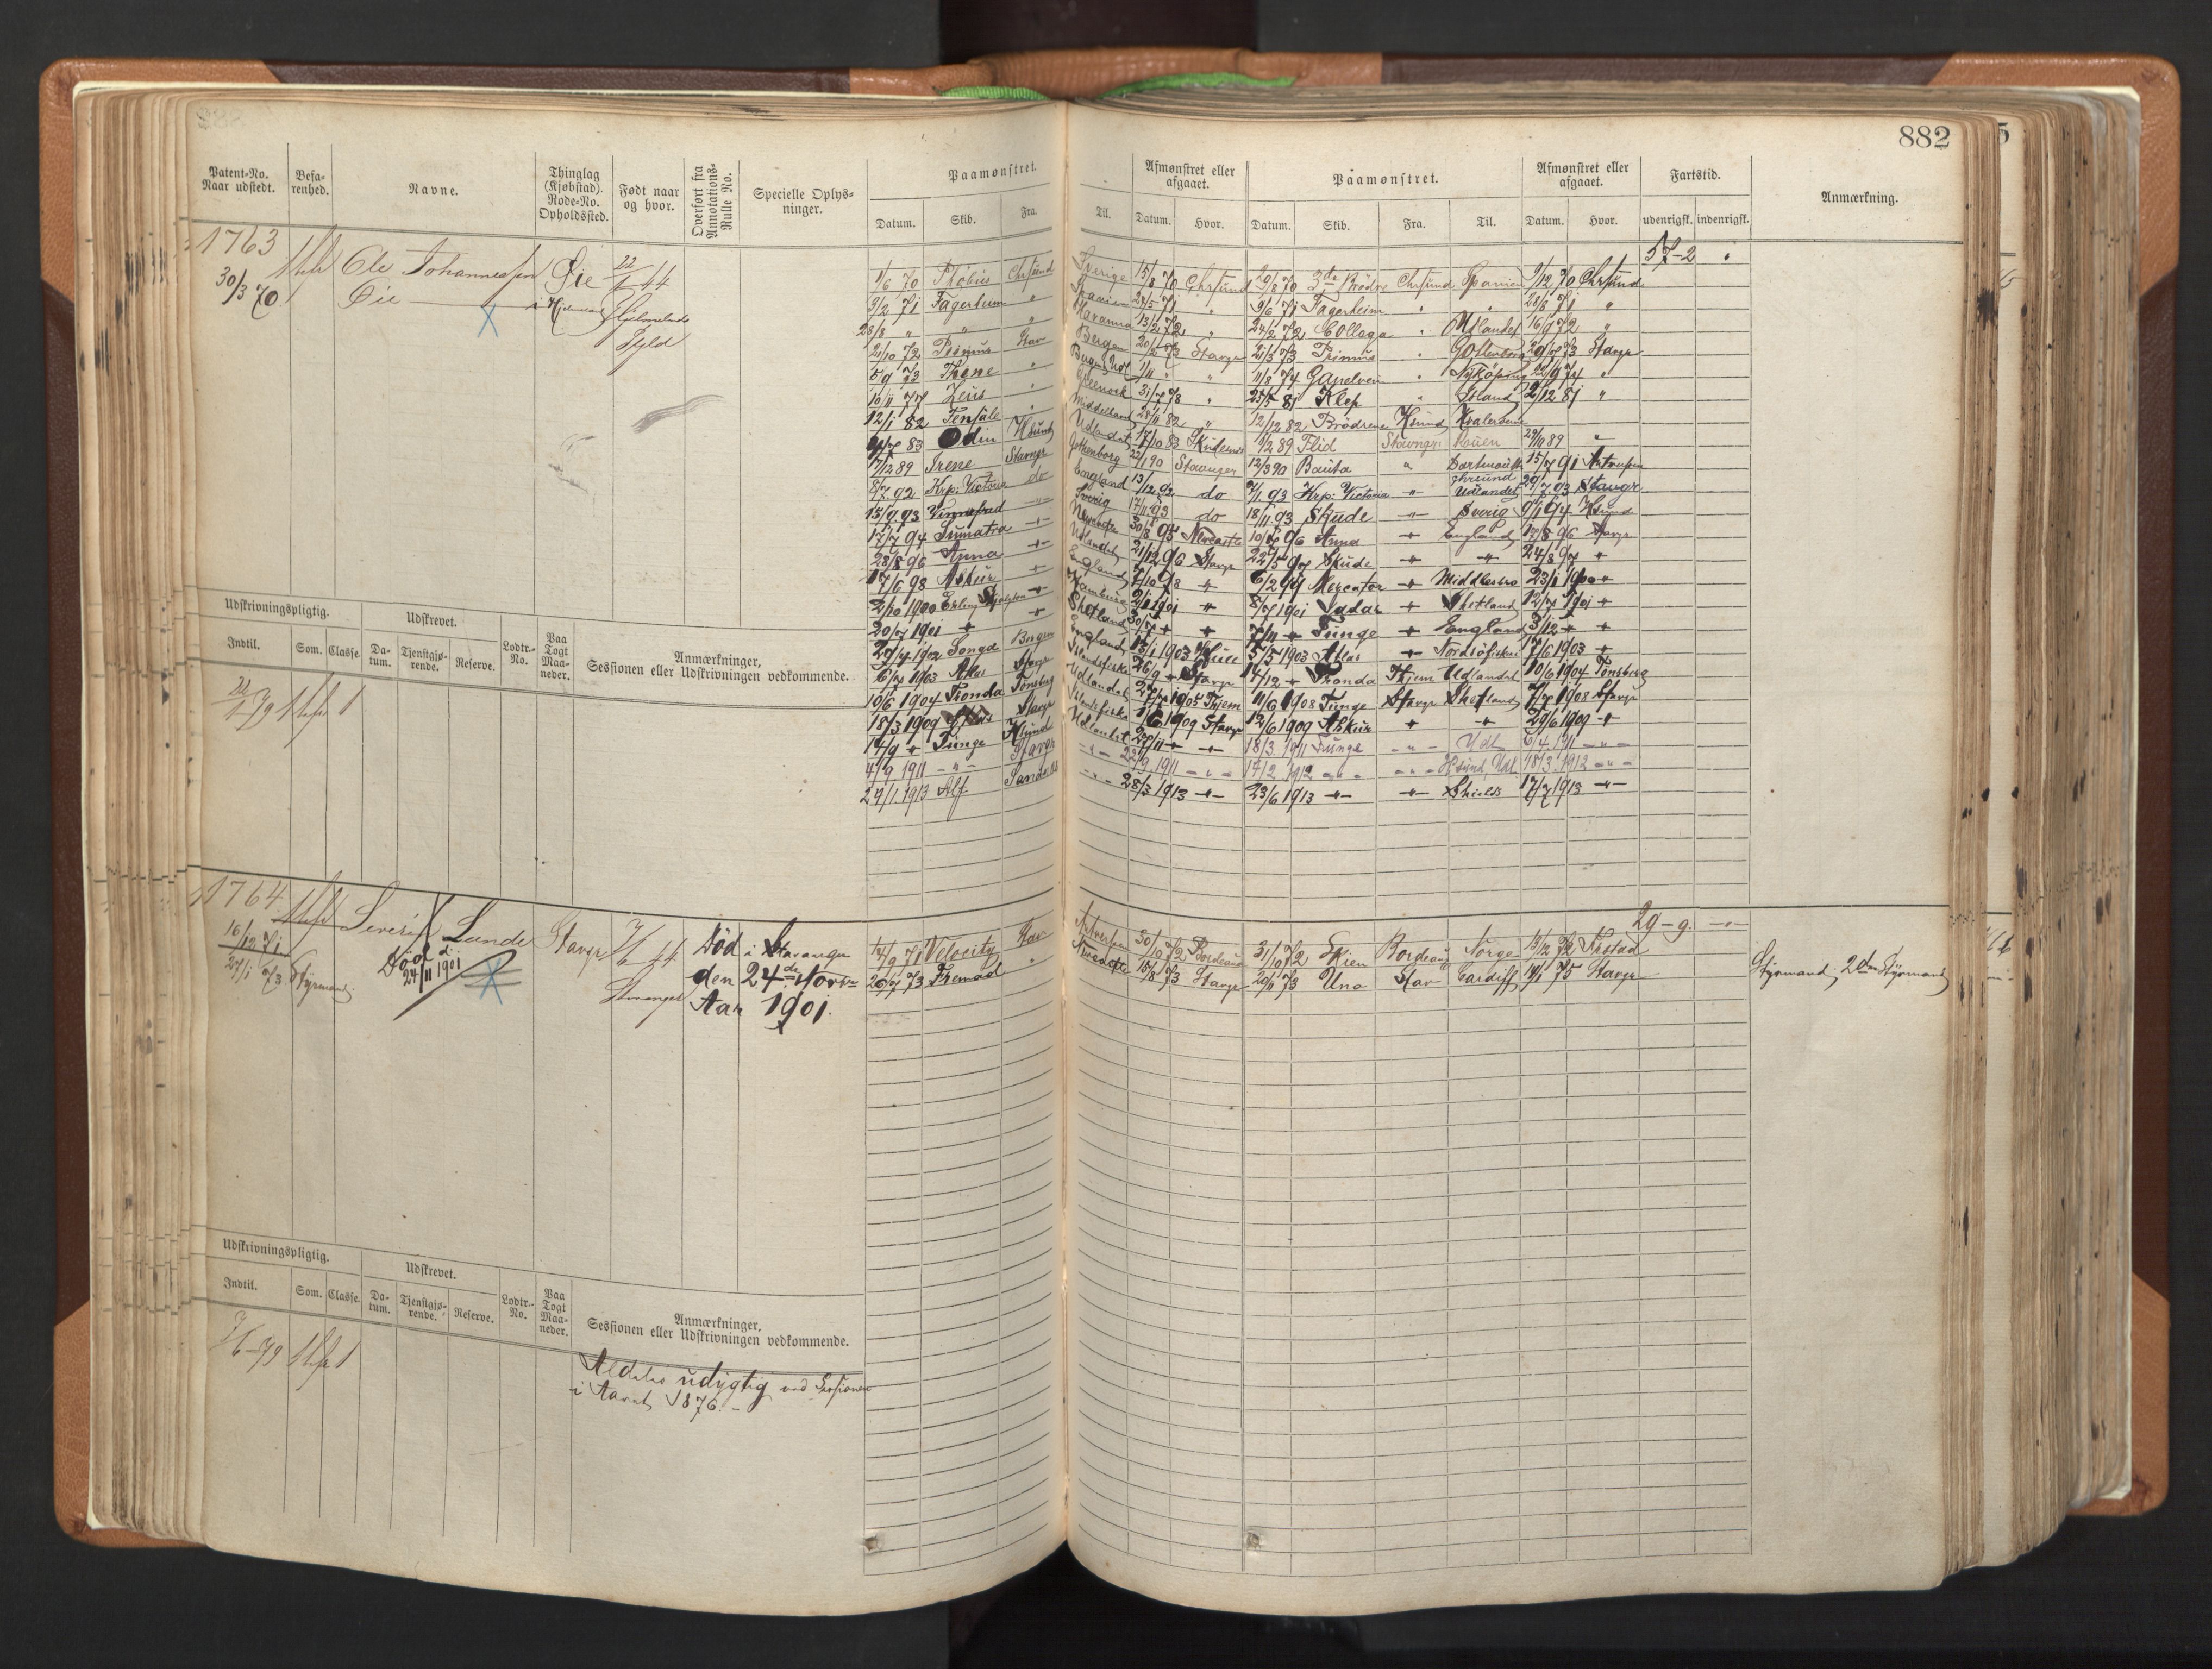 882
Patent-No. Naar udstedt.
Befarenhed.
Navne.
Thinglag (Kjøbstad). Rode-No. Opholdssted.
Født naar og hvor.
Overført fra Annotations-Rulle No.
Specielle Oplysninger.
Paamønstret.
Datum. Skib. Fra. Til.
Afmønstret eller afgaaet.
Datum. Hvor.
Paamønstret.
Datum. Skib. Fra. Til.
Afmønstret eller afgaaet.
Datum. Hvor.
Fartstid.
udenrigsk. indenrigsk.
Anmærkning.
1763
30/3 70
Ole Johannessen
Øie
Øie
i Hjelmeland
44
Hjelmeland
Fyld
57-2
1/6 70 Phøbus Chrsund Sverige 15/8 70 Chrsund 29/8 70 3de Brødre Chrsund Spanien 9/12 70 Chrsund
3/2 71 Fagerheim " Spanien 24/5 71 " 9/6 71 Fagerheim " " 28/8 71 "
28/8 " " " 13/2 72 " 24/2 72 Collega " Udlandet 16/9 72 "
21/10 72 Primus Stav Bergen 20/2 73 Stavgr 21/3 73 Primus " Gottenborg 73 Stavgr
5/9 73 Thone " " 11/8 74 Gandven " Nyköping 74 "
10/11 77 Zeus " Greenock 31/7 78 " 25/5 81 Klep " Island 2/12 81 "
12/1 82 " Middelhavet 28/11 82 " 12/12 82 Brødrene Hsund
83 Odin Hsund Udlandet 17/10 83 Skudesns 19/2 89 Flid Stavngr Rouen 29/11 89 "
17/12 89 Irene Stavngr Gothenborg 22/1 90 Stavanger 12/3 90 Bauta " Dartmouth 15/7 91 Antwerpen
8/7 92 Krp: Victoria do England 13/12 92 do 7/1 93 Krp: Victoria " Udlandet 29/7 93 Stavgr
15/9 93 Sverig 17/11 93 do 18/11 93 Skude " Sverig 9/1 94 Hsund
17/7 94 Sumatra " 30/8 95 Newcastle 10/7 96 Anna " England 17/8 96 Stavgr
28/8 96 Anna " Udlandet 21/12 96 Stavgr 22/5 97 Skude " " 24/8 97 "
17/6 98 Askur " England 7/10 98 " 6/2 99 Mercator " Middlesbro 23/1 1900 "
2/10 1900 Erling " Hamburg 2/1 1901 " 8/7 1901 Sadar " Shetland 12/7 1901 "
20/7 1901 " " Shetland 30/7 " " 7/11 " Tunge " England 3/12 " "
29/7 1902 Songa Bergen England 13/1 1903 5/5 1903 Atlas " Nordsøfisket 17/6 1903 "
6/7 1903 Atlas Stavgr Islandsfiske 26/9 " Stavgr 17/12 " Fronda Thjem Udlandet 10/6 1904 Tønsberg
10/6 1904 Fronda Tønsberg Udlandet 1905 Thjem 11/6 1908 Tunge Stavgr Shetland 7/7 1908 Stavgr
18/3 1909 Stavgr Islandsfiske 11/6 1909 Stavgr 12/6 1909 Askur " " 29/6 1909 "
14/9 " Tunge Hsund Udlandet 27/11 " " 18/3 1911 Tunge " Udl 6/4 1911 "
4/9 1911 " Stavgr " 22/9 1911 " 17/2 1912 " " Hsund, Udl 18/3 1912 "
27/1 1913 Alf " 28/3 1913 " 23/6 1913 " " Shields 17/7 1913 "
Udskrivningspligtig.
Indtil. Som. Classe.
Udskrevet.
Datum. Tjenstgjørende. Reserve.
Lodtr.-No.
Paa Togt Maaneder.
Anmærkninger, Sessionen eller Udskrivningen vedkommende.
22/ 79
1764
16/12 71
27/1 73 Styrmand
Severin Lunde
Død d:
24/11 1901
Stavgr
7/6 44
Stavanger
Død i Stavanger
den 24de Novbr
Aar 1901.
29-9
14/9 71 Velocity Stav Antverpen 30/10 72 Bordeaux 31/10 72 Skien Bordeaux Norge 13/12 72
73 " 73 Stavgr 20/11 73 Una Stav Cardiff 75 Stavgr
Styrmand, 2den Styrmand
Udskrivningspligtig.
Indtil. Som. Classe.
Udskrevet.
Datum. Tjenstgjørende. Reserve.
Lodtr.-No.
Paa Togt Maaneder.
Anmærkninger, Sessionen eller Udskrivningen vedkommende.
7/6 79
Aldeles udygtig ved Sessionen
i Aaret 1876.